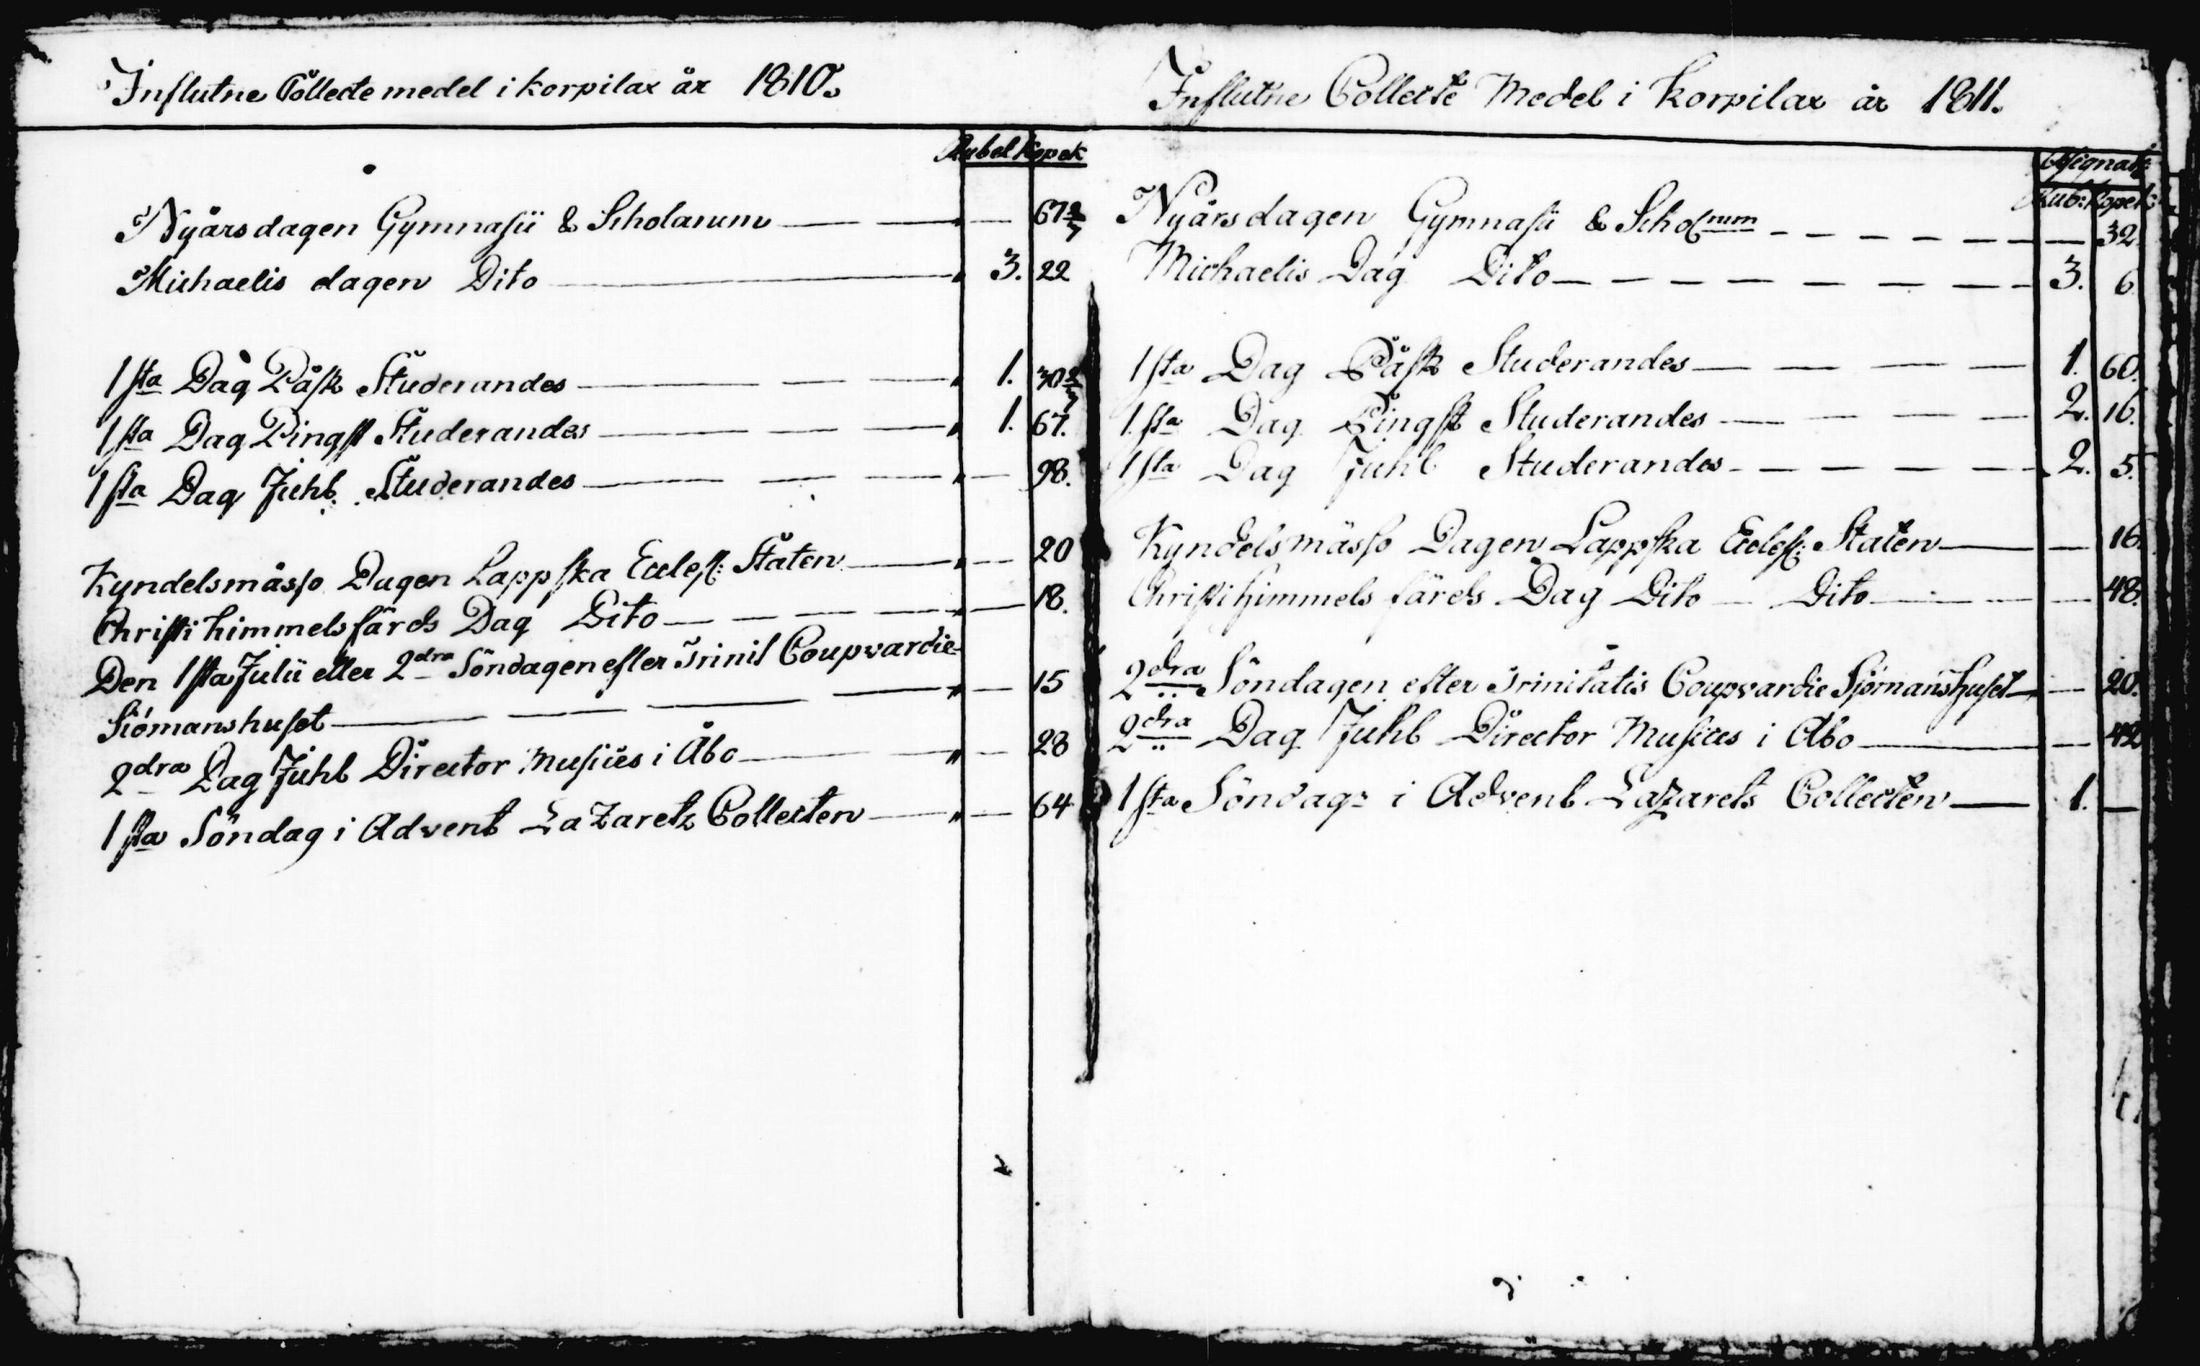 Influtne Collecte medel i Korpilax år 1810.
Rubel Kopek
Nyårsdagen Gymnasii & Scholarum — — — 67 2/7
Michaelis dagen Dito — " 3. 22
1sta Dag Påsk Studerandes — — — " 1. 30 2/7
1sta Dag Pingst Studerandes — — — " 1. 67.
1sta Dag Juhl Studerandes — — — " — 98.
Kyndelsmässo Dagen Lappska Eccles: Staten — " — 20
Christi himmelsfärds Dag Dito — — — " — 18.
Den 1sta Julii eller 2dra Söndagen efter Trinit Coupvardie-
Siömanshuset — — — " — 15
2dra Dag Juhl Director Musices i Åbo — — " — 28
1sta Söndag i Advent Lazaretz Collecten — " — 64
Influtne Collecte Medel i Korpilax år 1811.
Rub: Kopek:
Nyårsdagen Gymnasii & Scholrum — — — 32
Michaelis Dag Dito — — — 3. 6.
1sta Dag Påsk Studerandes — — — 1. 60.
1sta Dag Pingst Studerandes — — — 2. 16.
1sta Dag Juhl Studerandes — — — 2. 5.
Kyndelsmässo Dagen Lappska Eccles: Staten — — 16.
Christi himmels färds Dag Dito — Dito — — 48.
2dra Söndagen efter Trinitatis Coupvardie Sjömanshuset — — 20.
2dra Dag Juhl Director Musices i Åbo — — 42
1sta Söndag i Advent Lazarets Collecten — 1. —